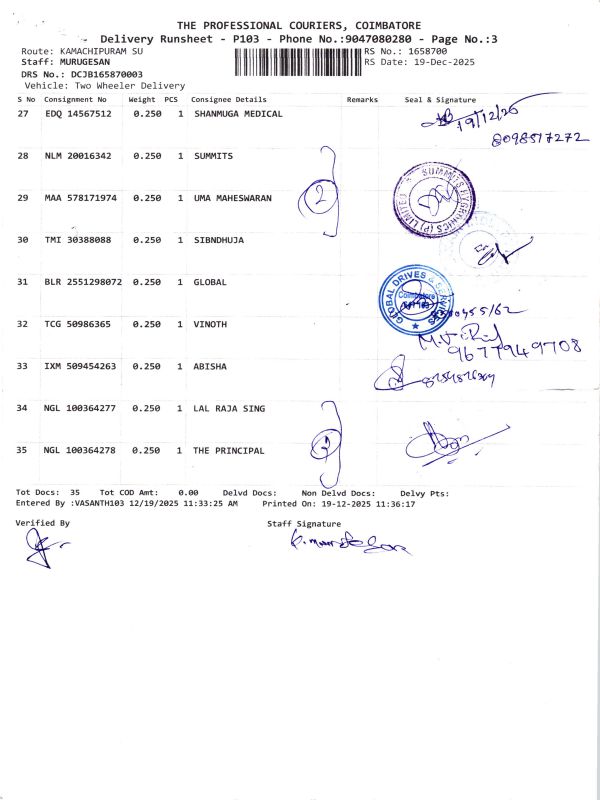 THE PROFESSIONAL COURIERS, COIMBATORE
Delivery Runsheet - P103 - Phone No.:9047080280 - Page No.:3
Route: KAMACHIPURAM SU RS No.: 1658700
Staff: MURUGESAN RS Date: 19-Dec-2025
DRS No.: DCJB165870003
Vehicle: Two Wheeler Delivery
S No Consignment No Weight PCS Consignee Details Remarks Seal & Signature
27 EDQ 14567512 0.250 1 SHANMUGA MEDICAL
19/12/25
8098517272
28 NLM 20016342 0.250 1 SUMMITS
29 MAA 578171974 0.250 1 UMA MAHESWARAN 2
SUMMITS HYGRONICS (P) LIMITED
30 TMI 30388088 0.250 1 SIBNDHUJA
31 BLR 2551298072 0.250 1 GLOBAL
GLOBAL DRIVES & SERVICES
Coimbatore
32 TCG 50986365 0.250 1 VINOTH
9677949708
33 IXM 509454263 0.250 1 ABISHA
34 NGL 100364277 0.250 1 LAL RAJA SING
35 NGL 100364278 0.250 1 THE PRINCIPAL 2
Tot Docs: 35 Tot COD Amt: 0.00 Delvd Docs: Non Delvd Docs: Delvy Pts:
Entered By :VASANTH103 12/19/2025 11:33:25 AM Printed On: 19-12-2025 11:36:17
Verified By Staff Signature